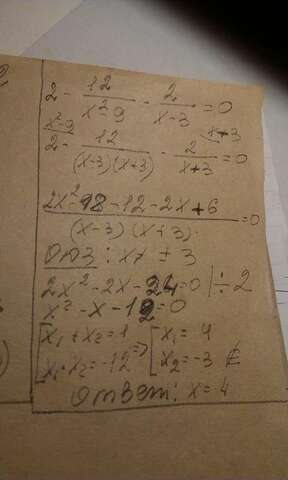 2 - 12/(x²-9) - 2/(x-3) = 0
x²-9 x+3
2 - 12/((x-3)(x+3)) - 2/(x+3) = 0
(2x²-98-12-2x+6)/((x-3)(x+3)) = 0
ОДЗ: x≠ ±3
2x²-2x-24=0 |÷2
x²-x-12=0
[x₁+x₂=1 => [x₁=4
[x₁·x₂=-12 [x₂=-3 ∉
Ответ: x=4